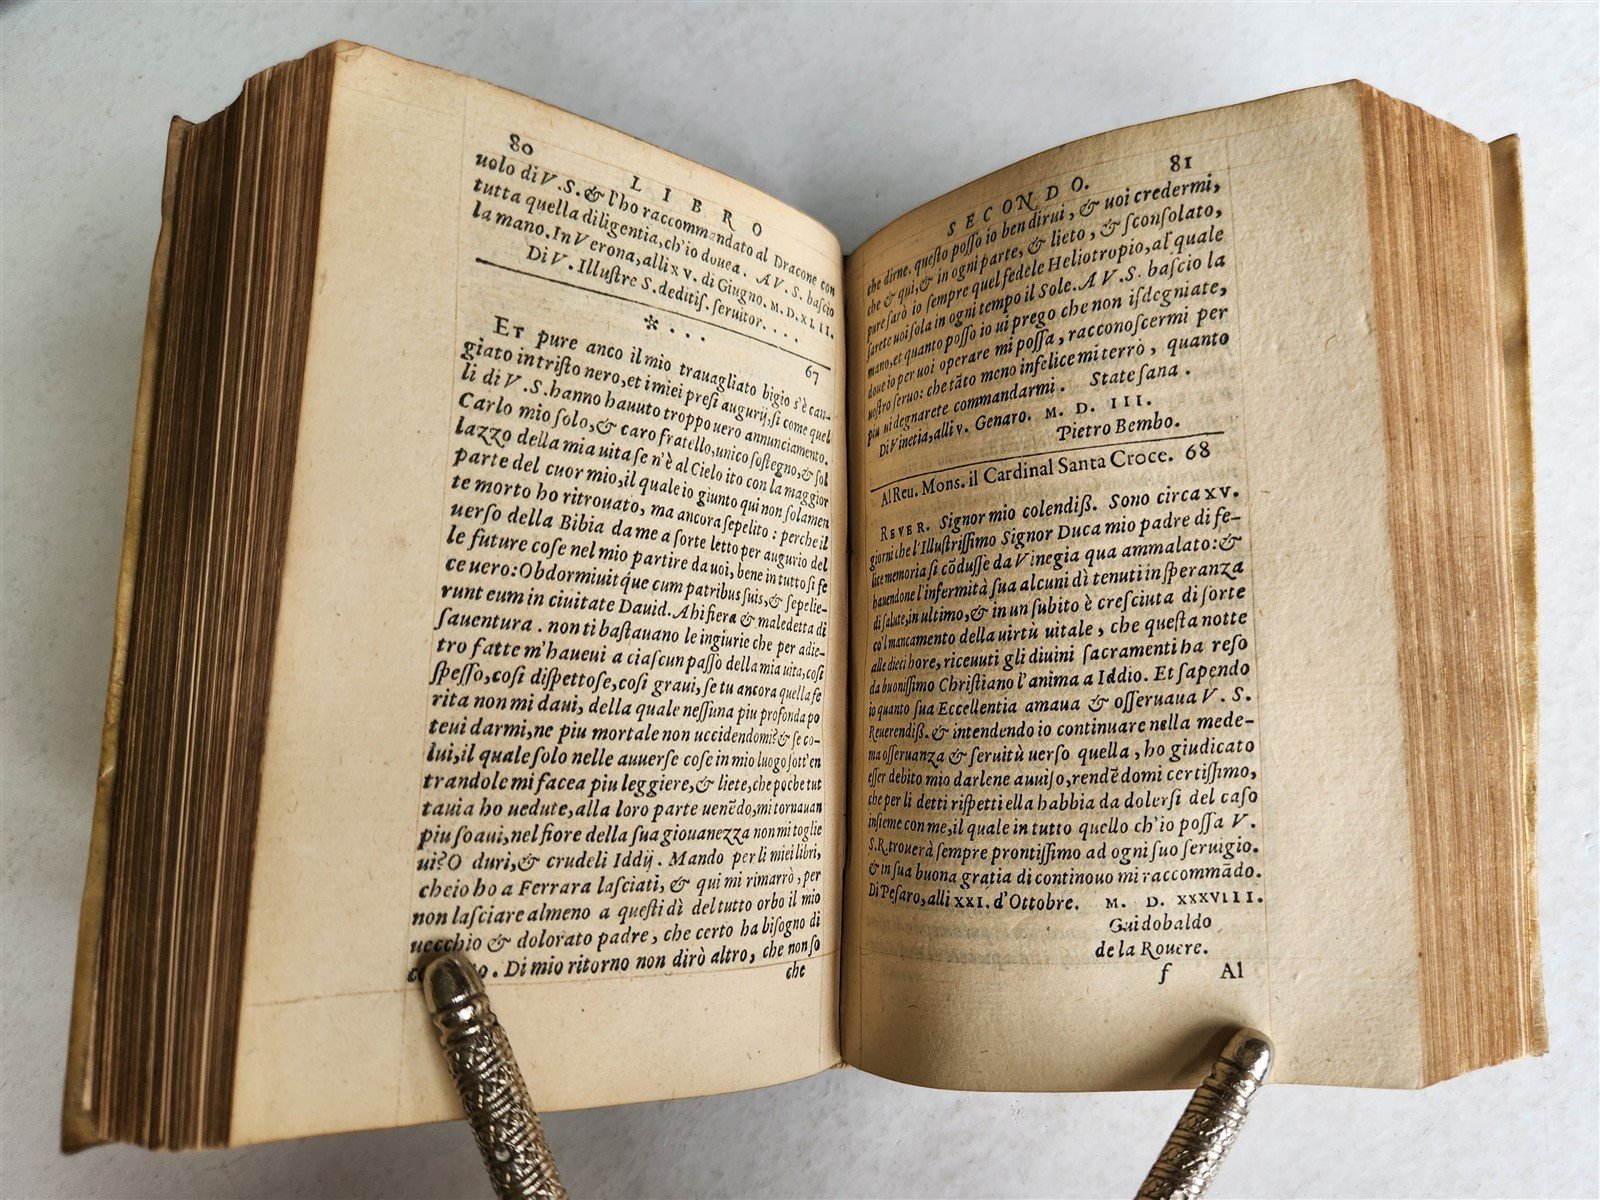 80
LIBRO
uolo di V. S. & l'ho raccommandato al Dracone con
tutta quella diligentia, ch'io douea. A V. S. bascio
la mano. In Verona, alli xv. di Giugno. M. D. XLII.
Di V. Illustre S. deditiss. seruitor. . . .
* . . . 67
ET pure anco il mio trauagliato bigio s'è can-
giato in tristo nero, et i miei presi augurij, si come quel
li di V. S. hanno hauuto troppo uero annunciamento.
Carlo mio solo, & caro fratello, unico sostegno, & sol
lazzo della mia uita se n'è al Cielo ito con la maggior
parte del cuor mio, il quale io giunto qui non solamen
te morto ho ritrouato, ma ancora sepelito: perche il
uerso della Bibia da me a sorte letto per augurio del
le future cose nel mio partire da uoi, bene in tutto si fe
ce uero: Obdormiuit que cum patribus suis, & sepelie-
runt eum in ciuitate Dauid. Ahi fiera & maledetta di
sauentura. non ti bastauano le ingiurie che per adie-
tro fatte m'haueui a ciascun passo della mia uita, cosi
spesso, cosi dispettose, cosi graui, se tu ancora quella fe
rita non mi daui, della quale nessuna piu profonda po
teui darmi, ne piu mortale non uccidendomi? & se co-
lui, il quale solo nelle auuerse cose in mio luogo sott'en
trandole mi facea piu leggiere, & liete, che poche tut
tauia ho uedute, alla loro parte uenēdo, mi tornauan
piu soaui, nel fiore della sua giouanezza non mi toglie
ui? O duri, & crudeli Iddij. Mando per li miei libri,
che io ho a Ferrara lasciati, & qui mi rimarrò, per
non lasciare almeno a questi dì del tutto orbo il mio
uecchio & dolorato padre, che certo ha bisogno di
. Di mio ritorno non dirò altro, che non so
che
81
SECONDO.
che dirne. questo posso io ben dirui, & uoi credermi,
che & qui, & in ogni parte, & lieto, & sconsolato,
pure sarò io sempre quel fedele Heliotropio, al quale
sarete uoi sola in ogni tempo il Sole. A V. S. bascio la
mano, et quanto posso io ui prego che non isdegniate,
doue io per uoi operare mi possa, racconoscermi per
uostro seruo: che tāto meno infelice mi terrò, quanto
piu ui degnarete commandarmi. State sana.
Di Vinetia, alli v. Genaro. M. D. III.
Pietro Bembo.
Al Reu. Mons. il Cardinal Santa Croce. 68
REVER. Signor mio colendiss. Sono circa xv.
giorni che l'Illustrissimo Signor Duca mio padre di fe-
lice memoria si cōdusse da Vinegia qua ammalato: &
hauendone l'infermità sua alcuni dì tenuti in speranza
di salute, in ultimo, & in un subito è cresciuta di sorte
co'l mancamento della uirtù uitale, che questa notte
alle dieci hore, riceuuti gli diuini sacramenti ha reso
da buonissimo Christiano l'anima a Iddio. Et sapendo
io quanto sua Eccellentia amaua & osseruaua V. S.
Reuerendiss. & intendendo io continuare nella mede-
ma osseruanza & seruitù uerso quella, ho giudicato
esser debito mio darlene auuiso, rendēdomi certissimo,
che per li detti rispetti ella habbia da dolersi del caso
insieme con me, il quale in tutto quello ch'io possa V.
S. R. trouerà sempre prontissimo ad ogni suo seruigio.
& in sua buona gratia di continouo mi raccommādo.
Di Pesaro, alli XXI. d'Ottobre. M. D. XXXVIII.
Guidobaldo
de la Rouere.
f Al